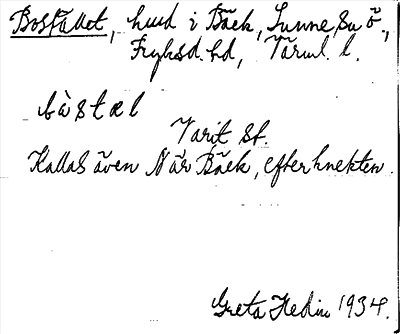 Bostället, hmd i Bäck, Sunne sn ö,
Fryksd. hd, Värml. l.
bὰstæl
Varit st.
Kallas även När Bäck, efter knekten.
Greta Hedin 1934.